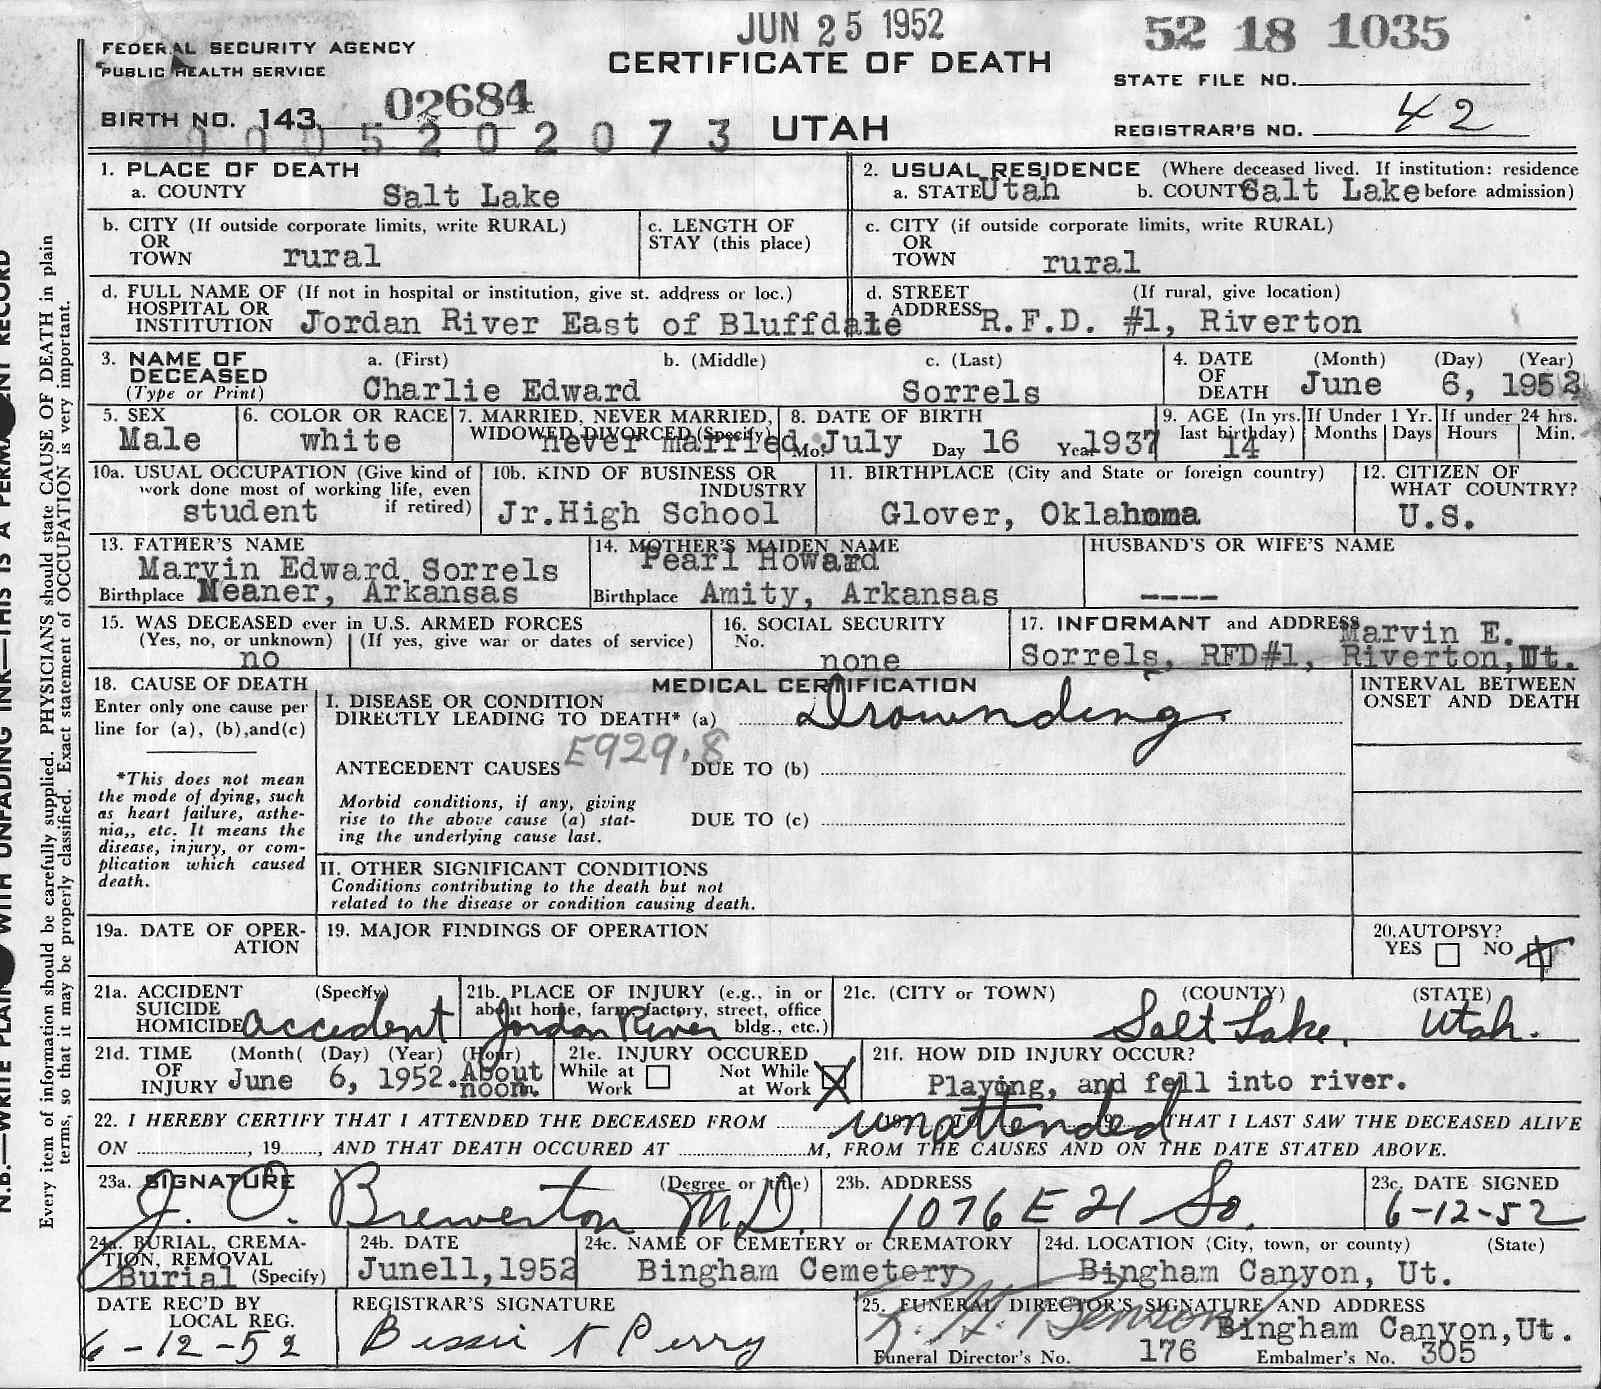 JUN 25 1952
52 18 1035
FEDERAL SECURITY AGENCY
PUBLIC HEALTH SERVICE
CERTIFICATE OF DEATH
STATE FILE NO.
BIRTH NO. 143 02684
0005202073
UTAH
REGISTRAR'S NO. 42
1. PLACE OF DEATH
a. COUNTY Salt Lake
2. USUAL RESIDENCE (Where deceased lived. If institution: residence
a. STATE Utah b. COUNTY Salt Lake before admission)
b. CITY (If outside corporate limits, write RURAL)
OR
TOWN rural
c. LENGTH OF
STAY (this place)
c. CITY (if outside corporate limits, write RURAL)
OR
TOWN rural
d. FULL NAME OF (If not in hospital or institution, give st. address or loc.)
HOSPITAL OR
INSTITUTION Jordan River East of Bluffdale
d. STREET (If rural, give location)
ADDRESS R.F.D. #1, Riverton
3. NAME OF a. (First) b. (Middle) c. (Last)
DECEASED
(Type or Print) Charlie Edward Sorrels
4. DATE (Month) (Day) (Year)
OF
DEATH June 6, 1952
5. SEX
Male
6. COLOR OR RACE
white
7. MARRIED, NEVER MARRIED,
WIDOWED, DIVORCED (Specify)
never married
8. DATE OF BIRTH
Mo. July Day 16 Year 1937
9. AGE (In yrs.
last birthday)
14
If Under 1 Yr.
Months Days
If under 24 hrs.
Hours Min.
10a. USUAL OCCUPATION (Give kind of
work done most of working life, even
student if retired)
10b. KIND OF BUSINESS OR
INDUSTRY
Jr.High School
11. BIRTHPLACE (City and State or foreign country)
Glover, Oklahoma
12. CITIZEN OF
WHAT COUNTRY?
U.S.
13. FATHER'S NAME
Marvin Edward Sorrels
Birthplace Meaner, Arkansas
14. MOTHER'S MAIDEN NAME
Pearl Howard
Birthplace Amity, Arkansas
HUSBAND'S OR WIFE'S NAME
----
15. WAS DECEASED ever in U.S. ARMED FORCES
(Yes, no, or unknown) (If yes, give war or dates of service)
no
16. SOCIAL SECURITY
No.
none
17. INFORMANT and ADDRESS Marvin E.
Sorrels, RFD#1, Riverton, Ut.
18. CAUSE OF DEATH
Enter only one cause per
line for (a), (b),and(c)
*This does not mean
the mode of dying, such
as heart failure, asthe-
nia,, etc. It means the
disease, injury, or com-
plication which caused
death.
MEDICAL CERTIFICATION
I. DISEASE OR CONDITION
DIRECTLY LEADING TO DEATH* (a) Drownding
E929.8
ANTECEDENT CAUSES DUE TO (b)
Morbid conditions, if any, giving
rise to the above cause (a) stat-
ing the underlying cause last.
DUE TO (c)
II. OTHER SIGNIFICANT CONDITIONS
Conditions contributing to the death but not
related to the disease or condition causing death.
INTERVAL BETWEEN
ONSET AND DEATH
19a. DATE OF OPER-
ATION
19. MAJOR FINDINGS OF OPERATION
20.AUTOPSY?
YES NO
21a. ACCIDENT (Specify)
SUICIDE
HOMICIDE accedent
21b. PLACE OF INJURY (e.g., in or
about home, farm, factory, street, office
bldg., etc.)
Jordan River
21c. (CITY or TOWN) (COUNTY) (STATE)
Salt Lake. Utah.
21d. TIME (Month( (Day) (Year) (Hour)
OF
INJURY June 6, 1952. About
noon.
21e. INJURY OCCURED
While at Not While
Work at Work
21f. HOW DID INJURY OCCUR?
Playing, and fell into river.
22. I HEREBY CERTIFY THAT I ATTENDED THE DECEASED FROM unattended THAT I LAST SAW THE DECEASED ALIVE
ON , 19 , AND THAT DEATH OCCURED AT M, FROM THE CAUSES AND ON THE DATE STATED ABOVE.
23a. SIGNATURE (Degree or title)
J. O. Brewerton M.D.
23b. ADDRESS
1076 E 21 So.
23c. DATE SIGNED
6-12-52
24a. BURIAL, CREMA-
TION, REMOVAL
Burial (Specify)
24b. DATE
June11,1952
24c. NAME OF CEMETERY or CREMATORY
Bingham Cemetery
24d. LOCATION (City, town, or county) (State)
Bingham Canyon, Ut.
DATE REC'D BY
LOCAL REG.
6-12-52
REGISTRAR'S SIGNATURE
Bessie N Perry
25. FUNERAL DIRECTOR'S SIGNATURE AND ADDRESS
Benson Bingham Canyon,Ut.
Funeral Director's No. 176 Embalmer's No. 305
Every item of information should be carefully supplied. PHYSICIANS should state CAUSE OF DEATH in plain
terms, so that it may be properly classified. Exact statement of OCCUPATION is very important.
N.B.—WRITE PLAIN WITH UNFADING INK—THIS IS A PERMANENT RECORD